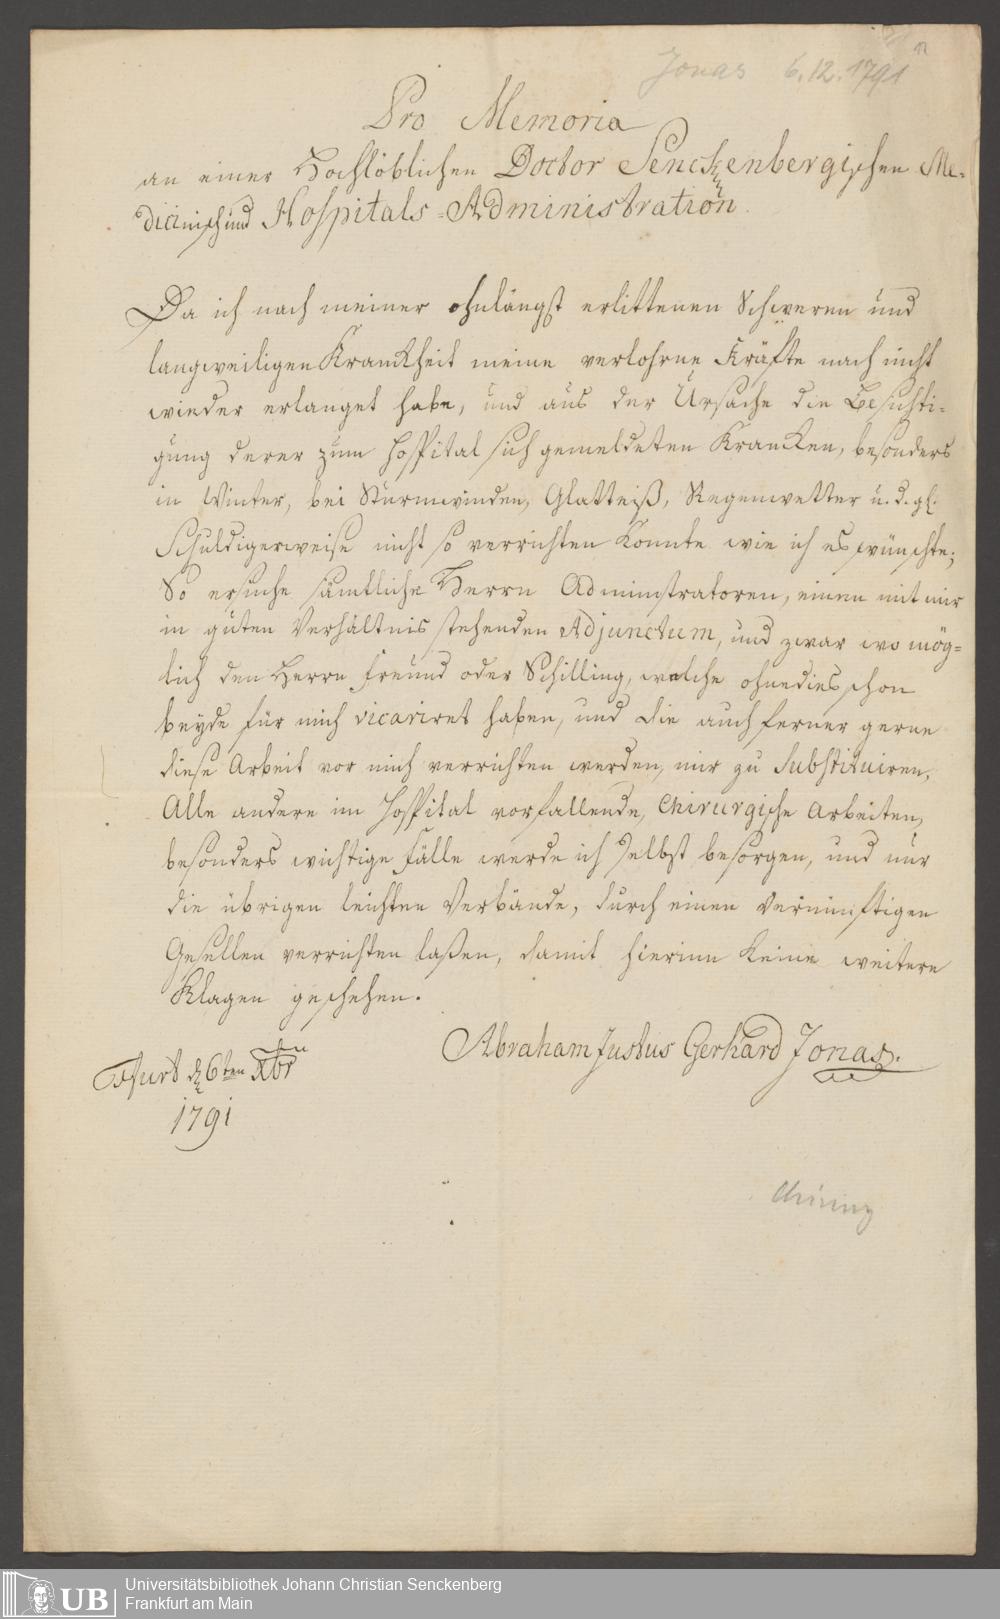 Jonas 6.12.1791
Pro Memoria
an einer Hochlöblichen Doctor Senckenbergischen Me-
dicinisch und Hospitals-Administration
Da ich nach meiner ohnlängst erlittenen Schweren und
langweiligen Kranckheit meine verlohrne Kräfte noch nicht
wieder erlanget habe, und aus der Ursache die Besichti-
gung derer zum Hospital sich gemeldeten Krancken, besonders
in Winter, bei Sturmwinden, Glatteiß, Regenwetter u. d. gl.
Schuldigerweise nicht so verrichten konnte wie ich es wünschte;
So ersuche sämtliche Herrn Administratoren, einen mit mir
in guten Verhältnis stehenden Adjunctum, und zwar wo mög-
lich den Herrn Freund oder Schilling, welche ohnedies schon
beyde für mich vicariret haben, und die auch ferner gerne
diese Arbeit vor mich verrichten werden, mir zu Substituiren,
Alle andere im Hospital vorfallende, Chirurgische Arbeiten,
besonders wichtige Fälle werde ich selbst besorgen, und nur
die übrigen leichten Verbände, durch einen vernünftigen
Gesellen verrichten laßen, damit hierinn keine weitere
Klagen geschehen.
Abraham Justus Gerhard Jonas.
Ffurt d 6ten Xbr
1791
Universitätsbibliothek Johann Christian Senckenberg
Frankfurt am Main
UB